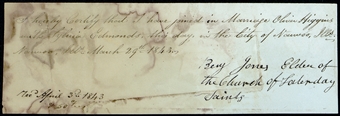 I hereby certify that I have joined in Marriage Olivir Higgins
and Edmonds, this day, in the City of Nauvoo, Ills.
Nauvoo Ills. March 29th 1843.
Benj Jones Elder of
the Church of Laterday
Saints
April 3d 1843